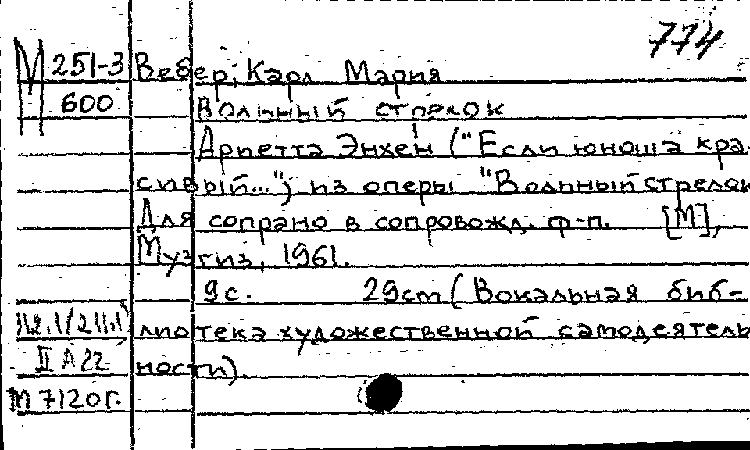 774
М 251-3 Вебер, Карл Мария
Н 600 Вольный стрелок
Ариетта Энхен ("Если юноша кра-
сивый...") из оперы "Вольный стрелок
Для сопрано в сопровожд. ф-п. [М],
Музгиз, 1961.
9с. 29cm (Вокальная биб-
лиотека художественной самодеятель
II А 22 ности).
М 7120г.